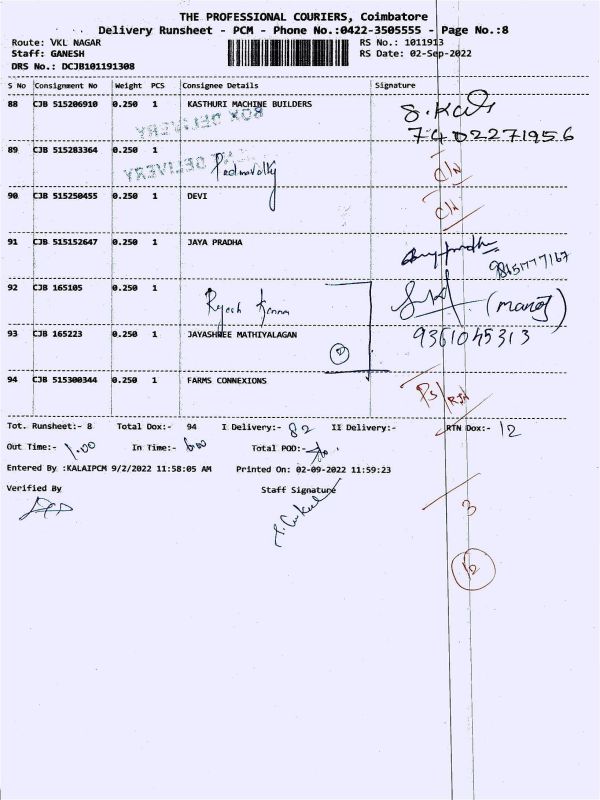 THE PROFESSIONAL COURIERS, Coimbatore
Delivery Runsheet - PCM - Phone No.:0422-3505555 - Page No.:8
Route: VKL NAGAR RS No.: 1011913
Staff: GANESH RS Date: 02-Sep-2022
DRS No.: DCJB101191308
S No Consignment No Weight PCS Consignee Details Signature
88 CJB 515206910 0.250 1 KASTHURI MACHINE BUILDERS
BOX DELIVERY
7402271956
89 CJB 515283364 0.250 1
D/N
90 CJB 515250455 0.250 1 DEVI
D/N
91 CJB 515152647 0.250 1 JAYA PRADHA
92 CJB 165105 0.250 1 Rajesh Kanna (manoj)
93 CJB 165223 0.250 1 JAYASHREE MATHIYALAGAN 9361045313
2
94 CJB 515300344 0.250 1 FARMS CONNEXIONS
Tot. Runsheet:- 8 Total Dox:- 94 I Delivery:- 82 II Delivery:- RTN Dox:- 12
Out Time:- 1.00 In Time:- 6.00 Total POD:-
Entered By :KALAIPCM 9/2/2022 11:58:05 AM Printed On: 02-09-2022 11:59:23
Verified By Staff Signature
3
12